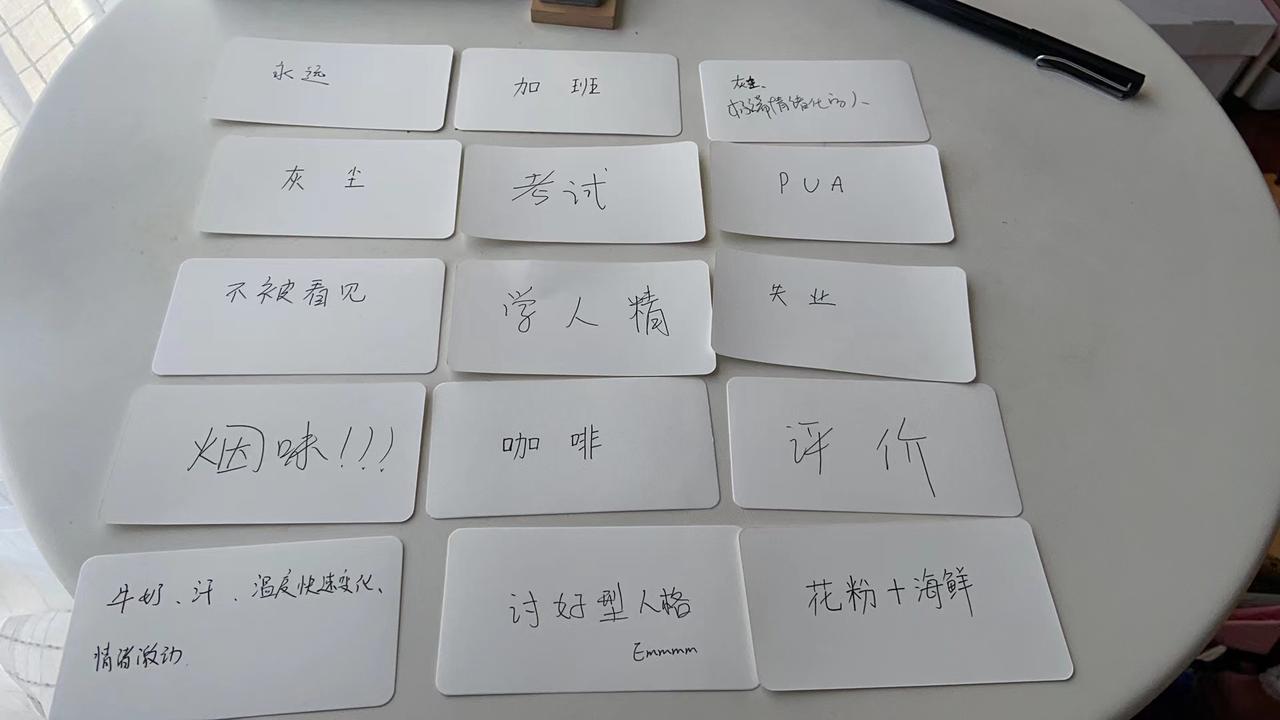 永远
加班
灰尘、
极端情绪化的人
灰尘
考试
PUA
不被看见
学人精
失业
烟味!!!
咖啡
评价
牛奶、汗、温度快速变化、
情绪激动
讨好型人格
Emmmm
花粉+海鲜